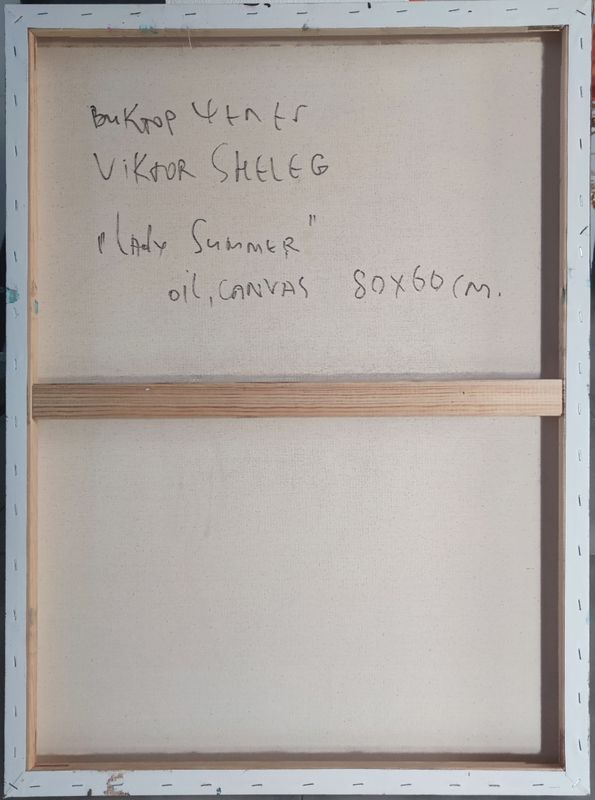 Виктор Шелег
VIKTOR SHELEG
"Lady SUMMER"
oil, CANVAS 80X60 cm.